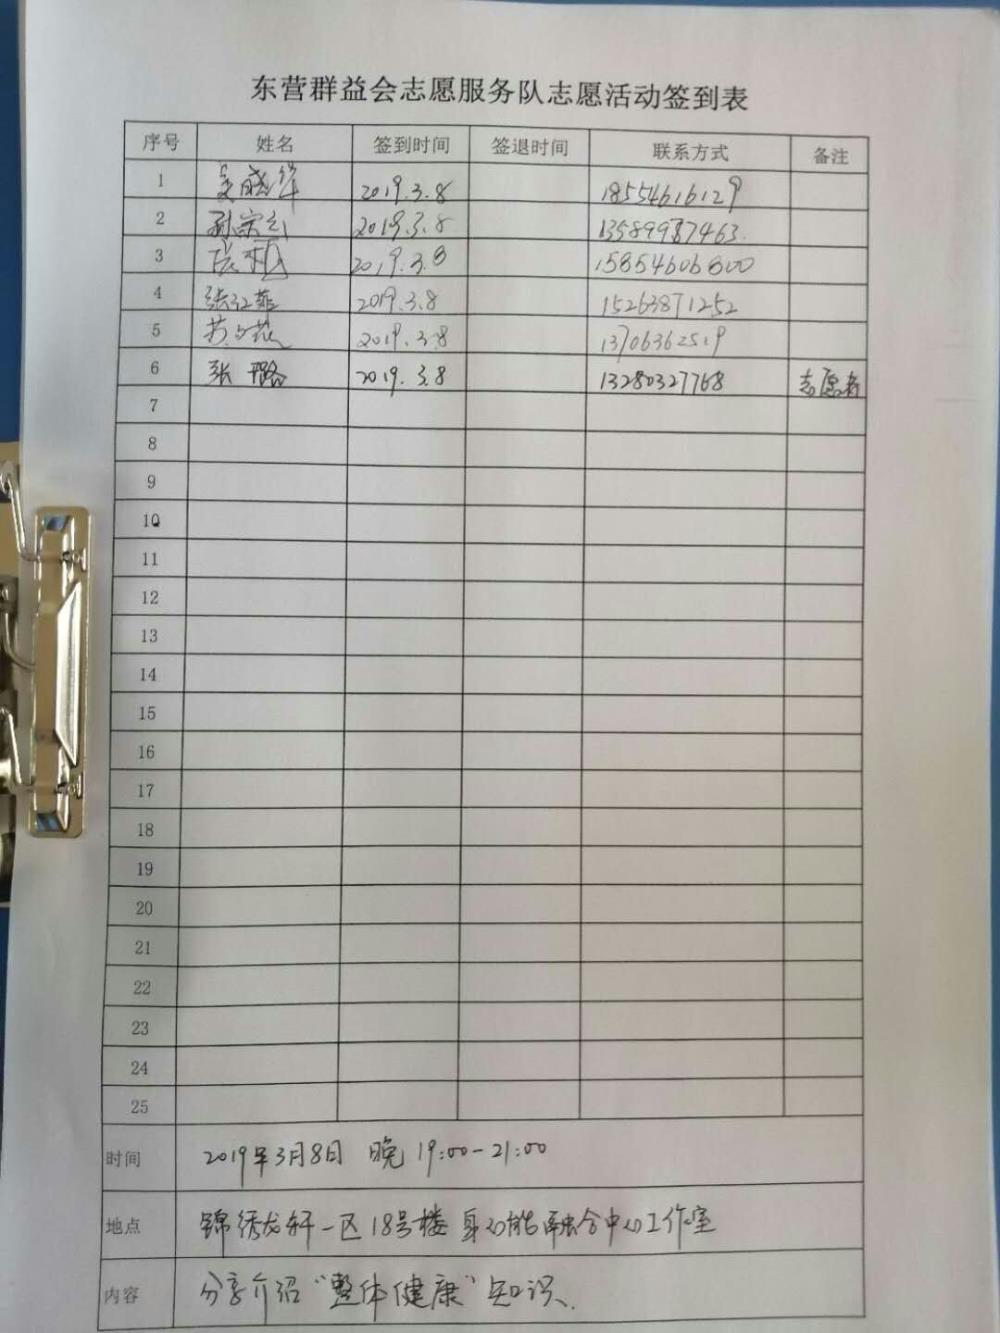 东营群益会志愿服务队志愿活动签到表
序号 姓名 签到时间 签退时间 联系方式 备注
1 2019.3.8 18554616129
2 孙宗 2019.3.8 13589987463.
3 张 2019.3.8 15854606800
4 张红苹 2019.3.8 15263871252
5 苏 2019.3.8 13706362519
6 张璐 2019.3.8 13280327768 志愿者
7
8
9
10
11
12
13
14
15
16
17
18
19
20
21
22
23
24
25
时间 2019年3月8日 晚 19:00-21:00
地点 锦绣龙轩一区18号楼 身心能融合中心工作室
内容 分享介绍“整体健康”知识.